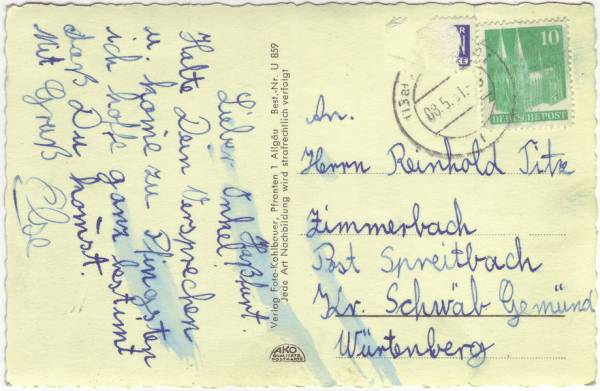 Lieber Onkel!
Haßfurt.
Halte Dein Versprechen
u. komme zu Pfingsten
ich hoffe ganz bestimt
daß Du kommst.
Mit Gruß Else
Verlag Foto-Kohlbauer, Pfronten 1 Allgäu Best.-Nr. U 859
Jede Art Nachbildung wird strafrechtlich verfolgt
AKO
QUALITÄTS
POSTKARTE
10
DEUTSCHE POST
08.5.51.
An.
Herrn Reinhold Titz
Zimmerbach
Post Spreitbach
Kr. Schwäb Gemünd
Würtenberg